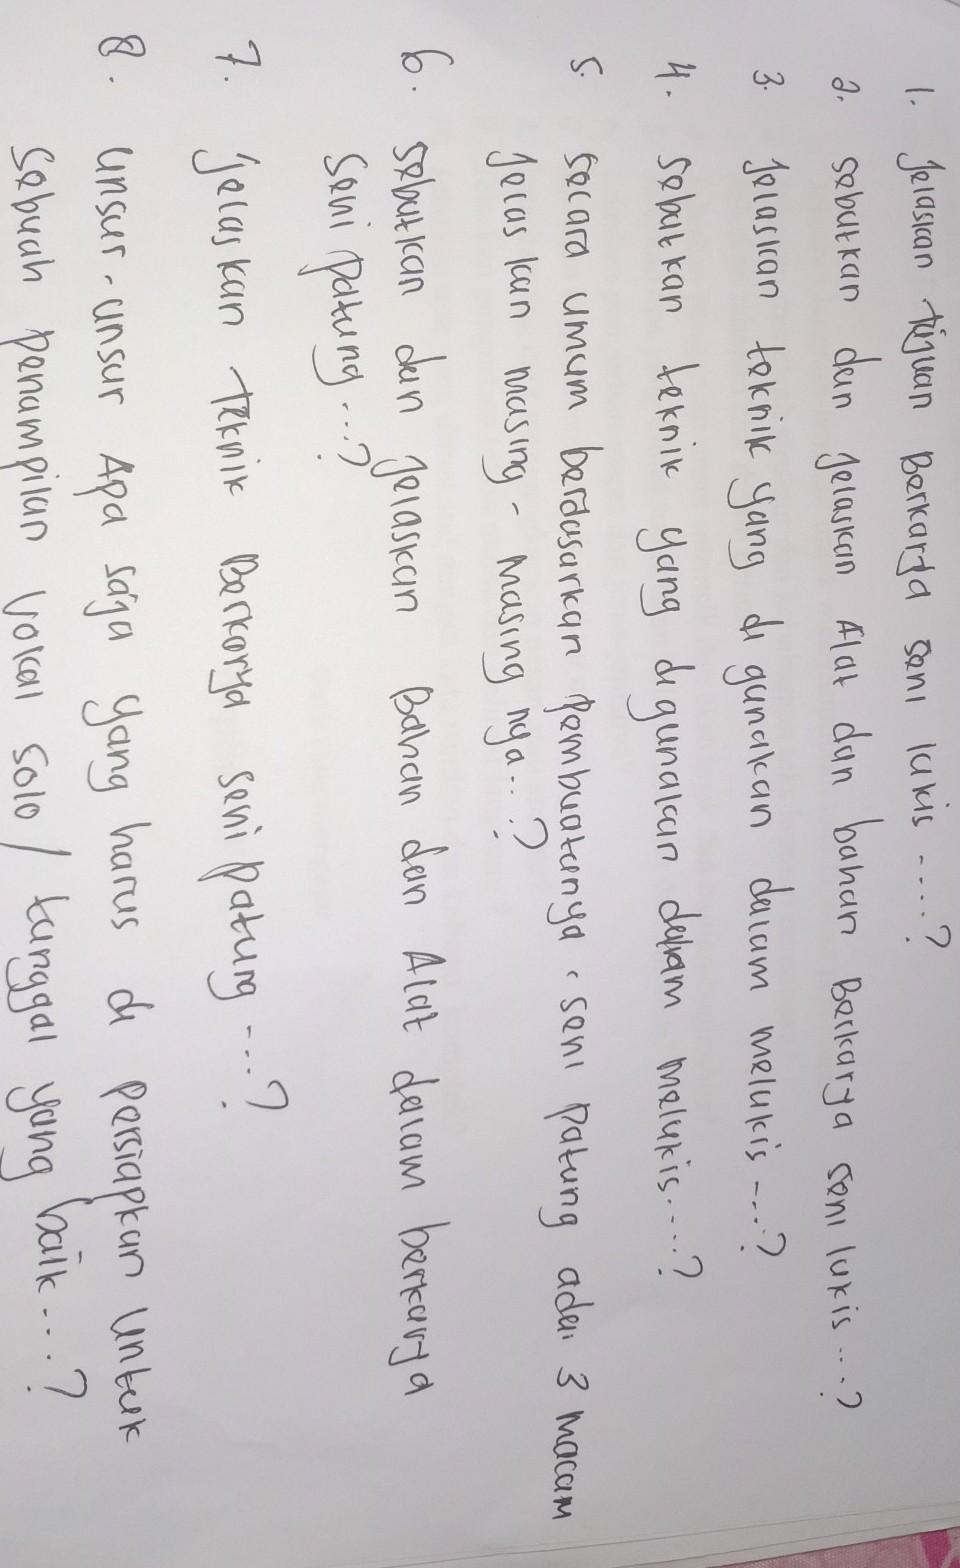 1. Jelaskan tujuan Berkarya seni lukis ....?
2. sebutkan dan Jelaskan Alat dan bahan Berkarya seni lukis ...?
3. Jelaskan teknik yang di gunakan dalam melukis ...?
4. sebutkan teknik yang digunakan dalam melukis....?
5. secara umum berdasarkan pembuatanya, seni patung ada 3 macam
Jelas kan masing - masing nya...?
6. sebutkan dan Jelaskan Bahan dan Alat dalam berkarya
Seni patung ...?
7. Jelaskan teknik Berkarya seni patung ...?
8. unsur - unsur Apa saja yang harus di persiapkan untuk
sebuah penampilan vokal solo / tunggal yang baik ...?